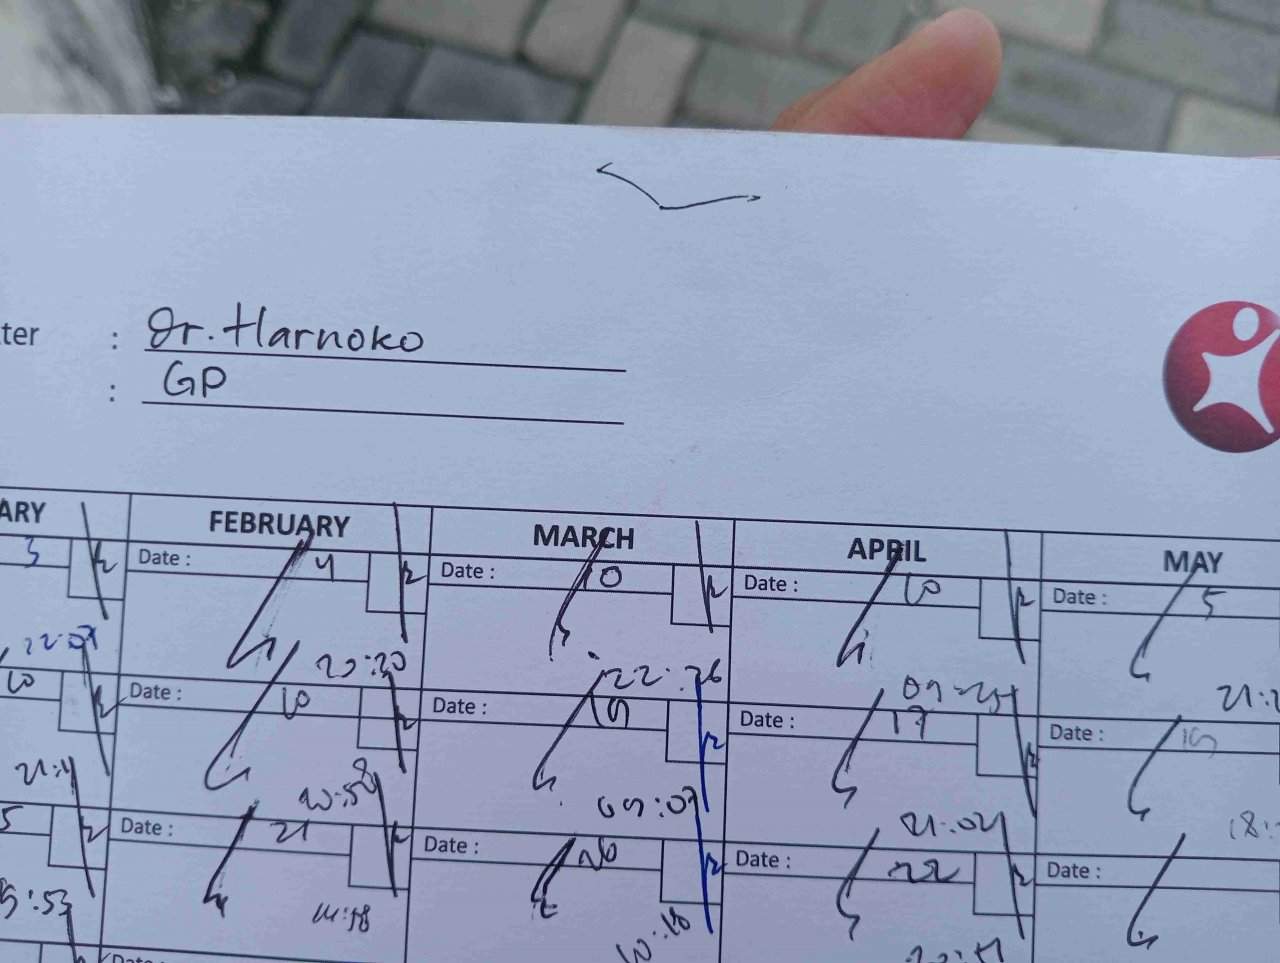 ter : Dr. Harnoko
: GP
ARY FEBRUARY MARCH APRIL MAY
3 Date : 4 Date : 10 Date : 10 Date : 5
22:07 20:30 22:26
10 Date : 10 Date : 19 Date : 17 Date : 19
20:58 09:07 21:04 18:
5 Date : 21 Date : 26 Date : 22 Date :
:53 14:58 10:18
Date :